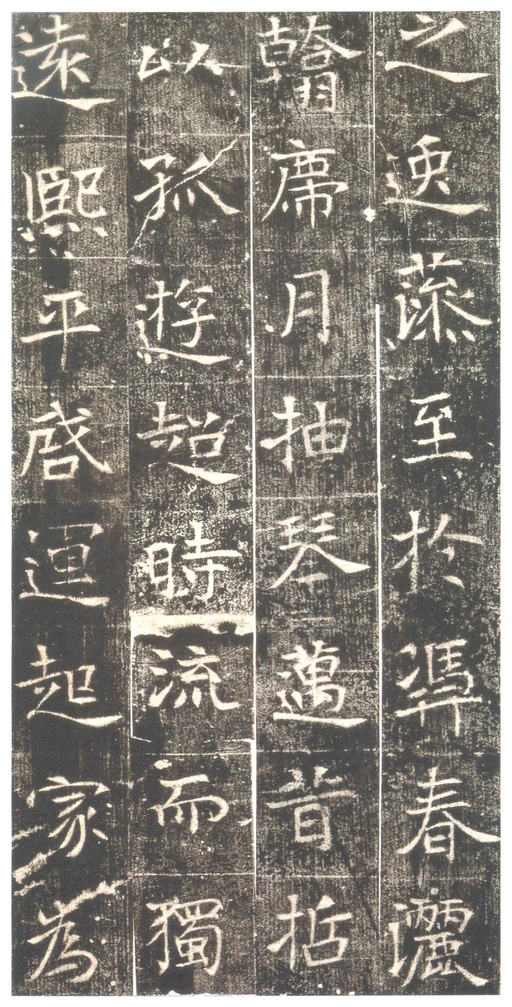 之逸藻至於憑春灑
翰席月抽琴邁昔哲
以孤遊超時流而獨
遠熙平啓運起家為